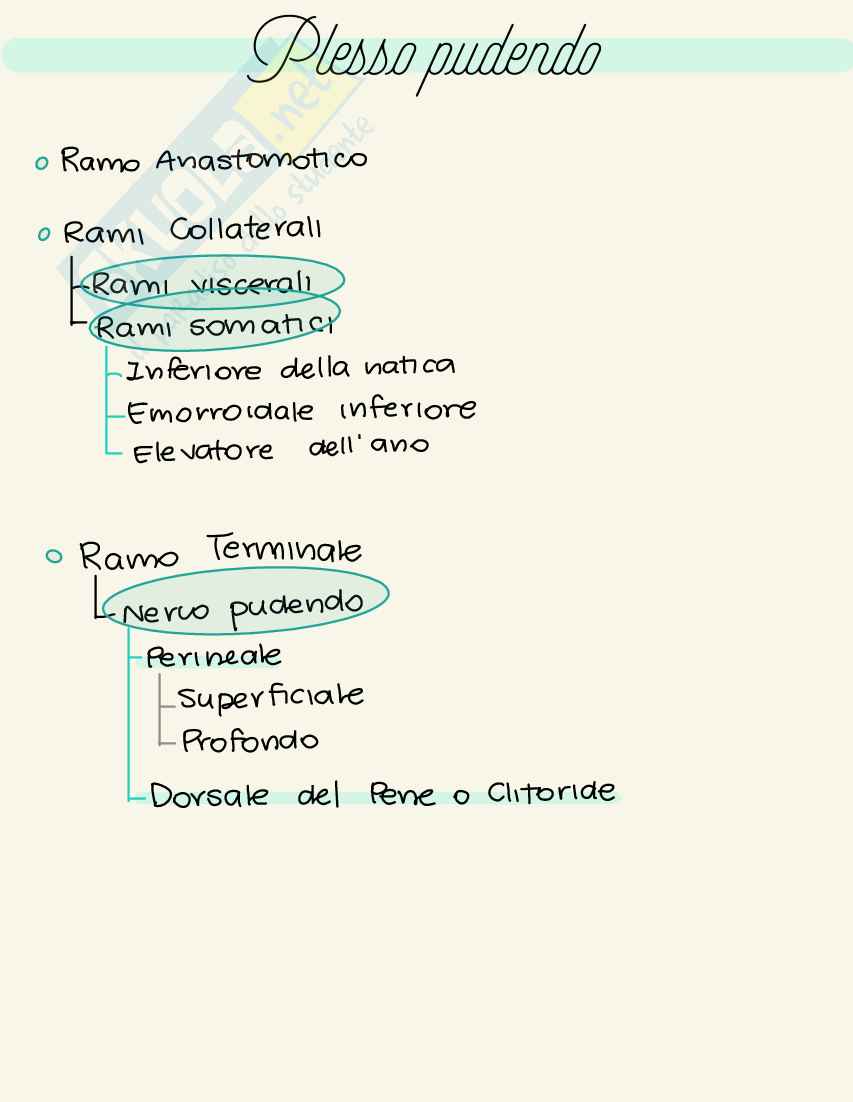 Plesso pudendo
Ramo Anastomotico
Rami Collaterali
Rami viscerali
Rami somatici
Inferiore della natica
Emorroidale inferiore
Elevatore dell'ano
Ramo Terminale
Nervo pudendo
Perineale
Superficiale
Profondo
Dorsale del Pene o Clitoride
SKUOLA.net
il paradiso dello studente